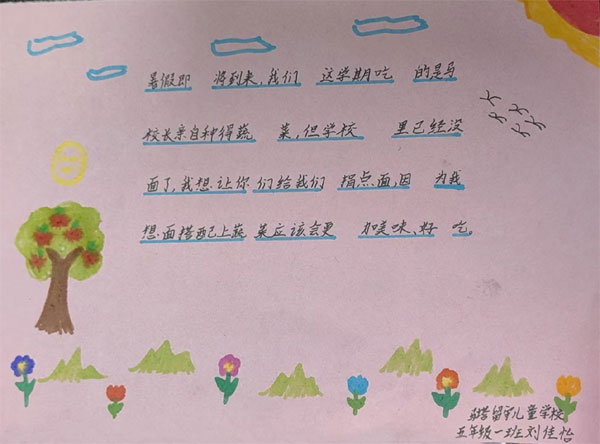 暑假即将到来,我们这学期吃的是马
校长亲自种得蔬菜,但学校里已经没
面了,我想让你们给我们捐点面,因为我
想面搭配上蔬菜应该会更加美味、好吃,
塔留守儿童学校
五年级一班刘佳怡